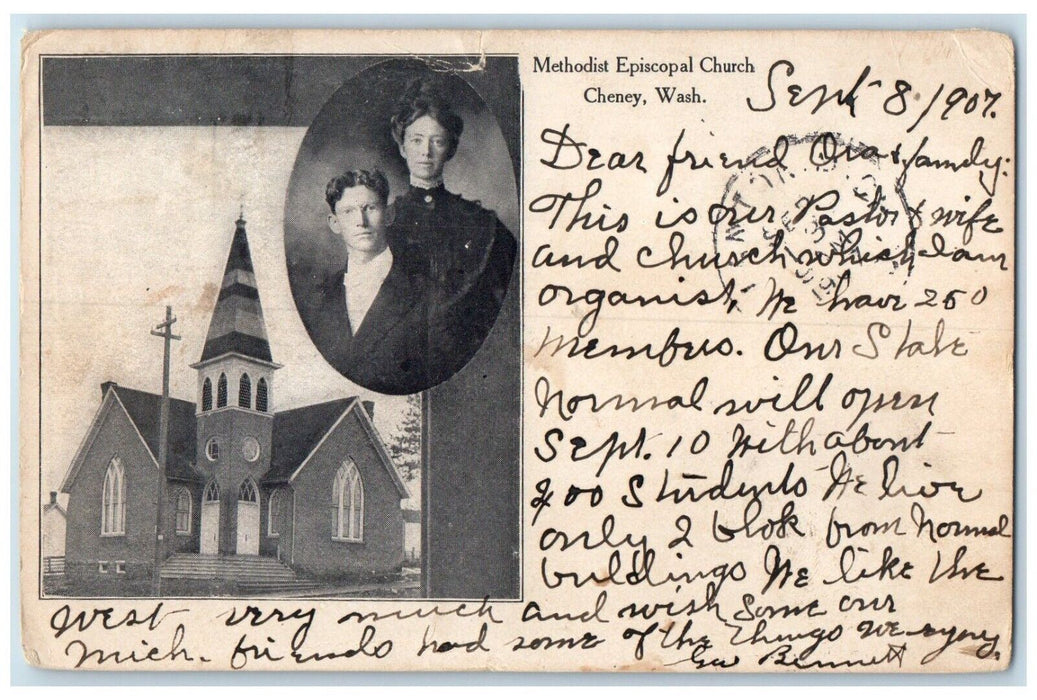 Methodist Episcopal Church
Cheney, Wash.
Sept 8/1907.
Dear friend Ora & family:
This is our Pastor & wife
and church which I am
organist. We have 250
members. Our State
Normal will open
Sept. 10 with about
400 students We live
only 2 blok from Normal
buildings We like the
West very much and wish some our
Mich. friends had some of the things we enjoy.
Geo Bennett